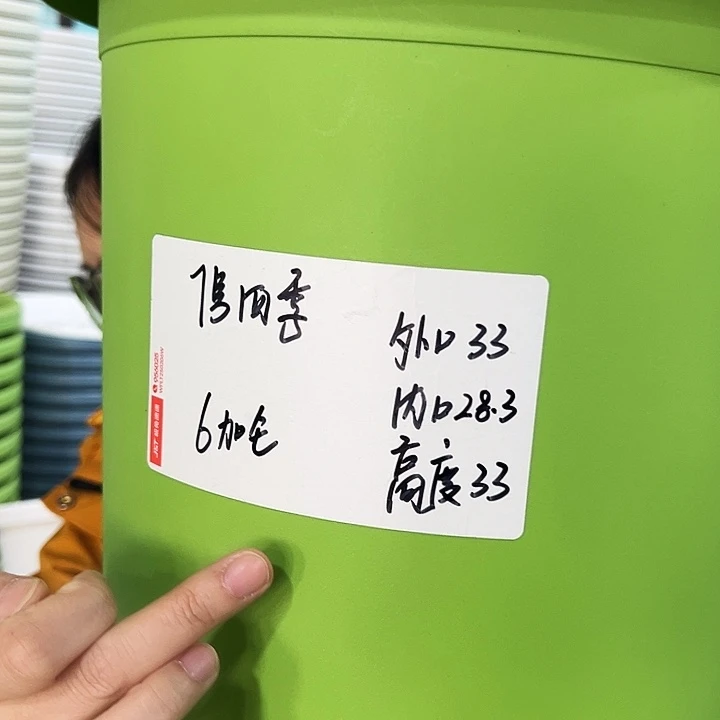 1号四季
6加仑
外口33
内口28.3
高度33
956025
J&T